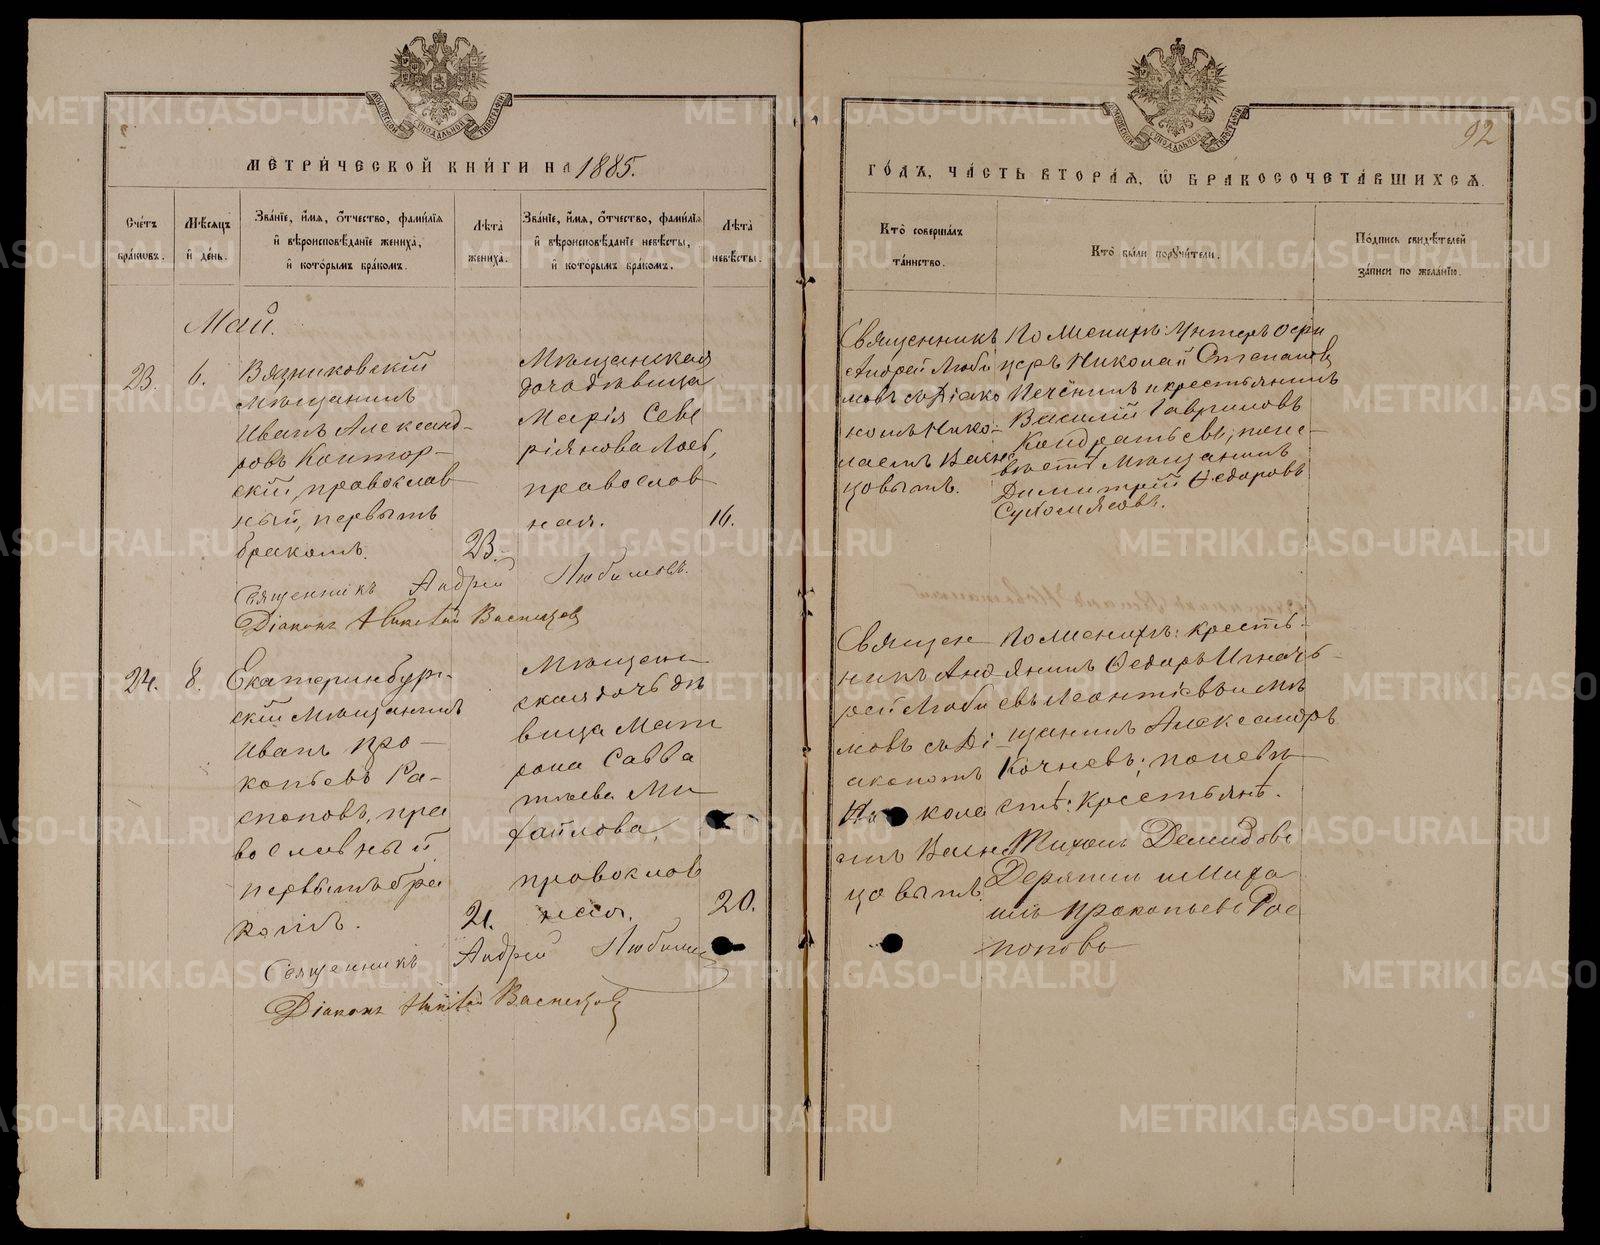 МОСКОВСКОЙ СѴНОДАЛЬНОЙ ТИПОГРАФІИ
МЕТРИ́ЧЕСКОЙ КНИ́ГИ НА 1885.
Счётъ бра́ковъ.
Мѣ́сяцъ и̂ де́нь.
Зва́нїе, и҆́мѧ, ѻ҆́тчество, фами́лїѧ и҆ вѣроисповѣ́данїе жениха̀, и҆ кото́рымъ бра́комъ.
Лѣ́та жениха̀.
Зва́нїе, и҆́мѧ, ѻ҆́тчество, фами́лїѧ и҆ вѣроисповѣ́данїе невѣ́сты, и҆ кото́рымъ бра́комъ.
Лѣ́та невѣ́сты.
Май.
23.
6.
Вязниковскій
мѣщанинъ
Иванъ Александ-
ровъ Контор-
скій, православ
ный, первымъ
бракомъ.
23.
Мѣщанская
дочь дѣвица
Марія Севе
ріянова
православ
ная.
16.
Священникъ Андрей Любимовъ.
Діаконъ Николай Васнецовъ
24.
8.
Екатеринбург-
скій мѣщанинъ
Иванъ Про-
копьевъ Ра-
споповъ, пра
вославный
первымъ бра
комъ.
21.
Мѣщан
ская дочь дѣ
вица Мат
рона Савва
тіева Ми
хайлова,
православ
ная.
20.
Священникъ Андрей Любимовъ
Діаконъ Николай Васнецовъ
МОСКОВСКОЙ СѴНОДАЛЬНОЙ ТИПОГРАФІИ
92
ГО́ДЪ, ЧА́СТЬ ВТОРА́Я, Ѽ БРАКОСОЧЕТА́ВШИХСЯ.
Кто̀ соверша́лъ та́инство.
Кто̀ бы́ли порꙋчи́тели.
По́дпись свидѣ́телей за́писи по жела́нїю.
Священникъ
Андрей Люби
мовъ съ Діако
номъ Нико-
лаемъ Васне
цовымъ.
По женихѣ: Унтеръ офи
церъ Николай Степановъ
Печёнинъ и крестьянинъ
Василій Гавриловъ
Кондратьевъ; по не-
вѣстѣ мѣщанинъ
Димитрій Ѳедоровъ
Сухомясовъ.
Священ
никъ Анд
рей Люби
мовъ съ Ді-
акономъ
Николае
мъ Васне
цовымъ.
По женихѣ: кресть-
янинъ Ѳедоръ Игнать-
евъ Леонтіевъ и мѣ
щанинъ Александръ
Кочневъ; по невѣ
стѣ: крестьяне.
Тихонъ Демидовъ
Деряпин и Миха
илъ Прокопьевъ Рас
поповъ
METRIKI.GASO-URAL.RU